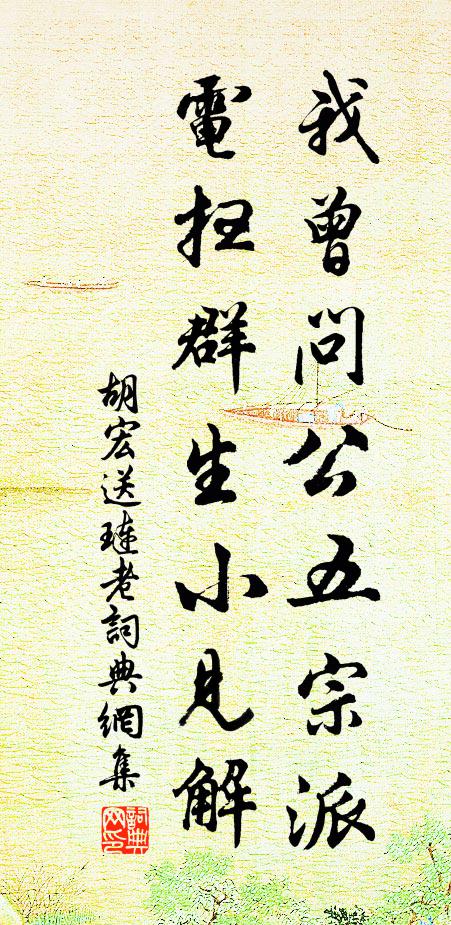 我曾问公五宗派
電扫群生小见解
胡宏送琏老詞典網集
詞典网印